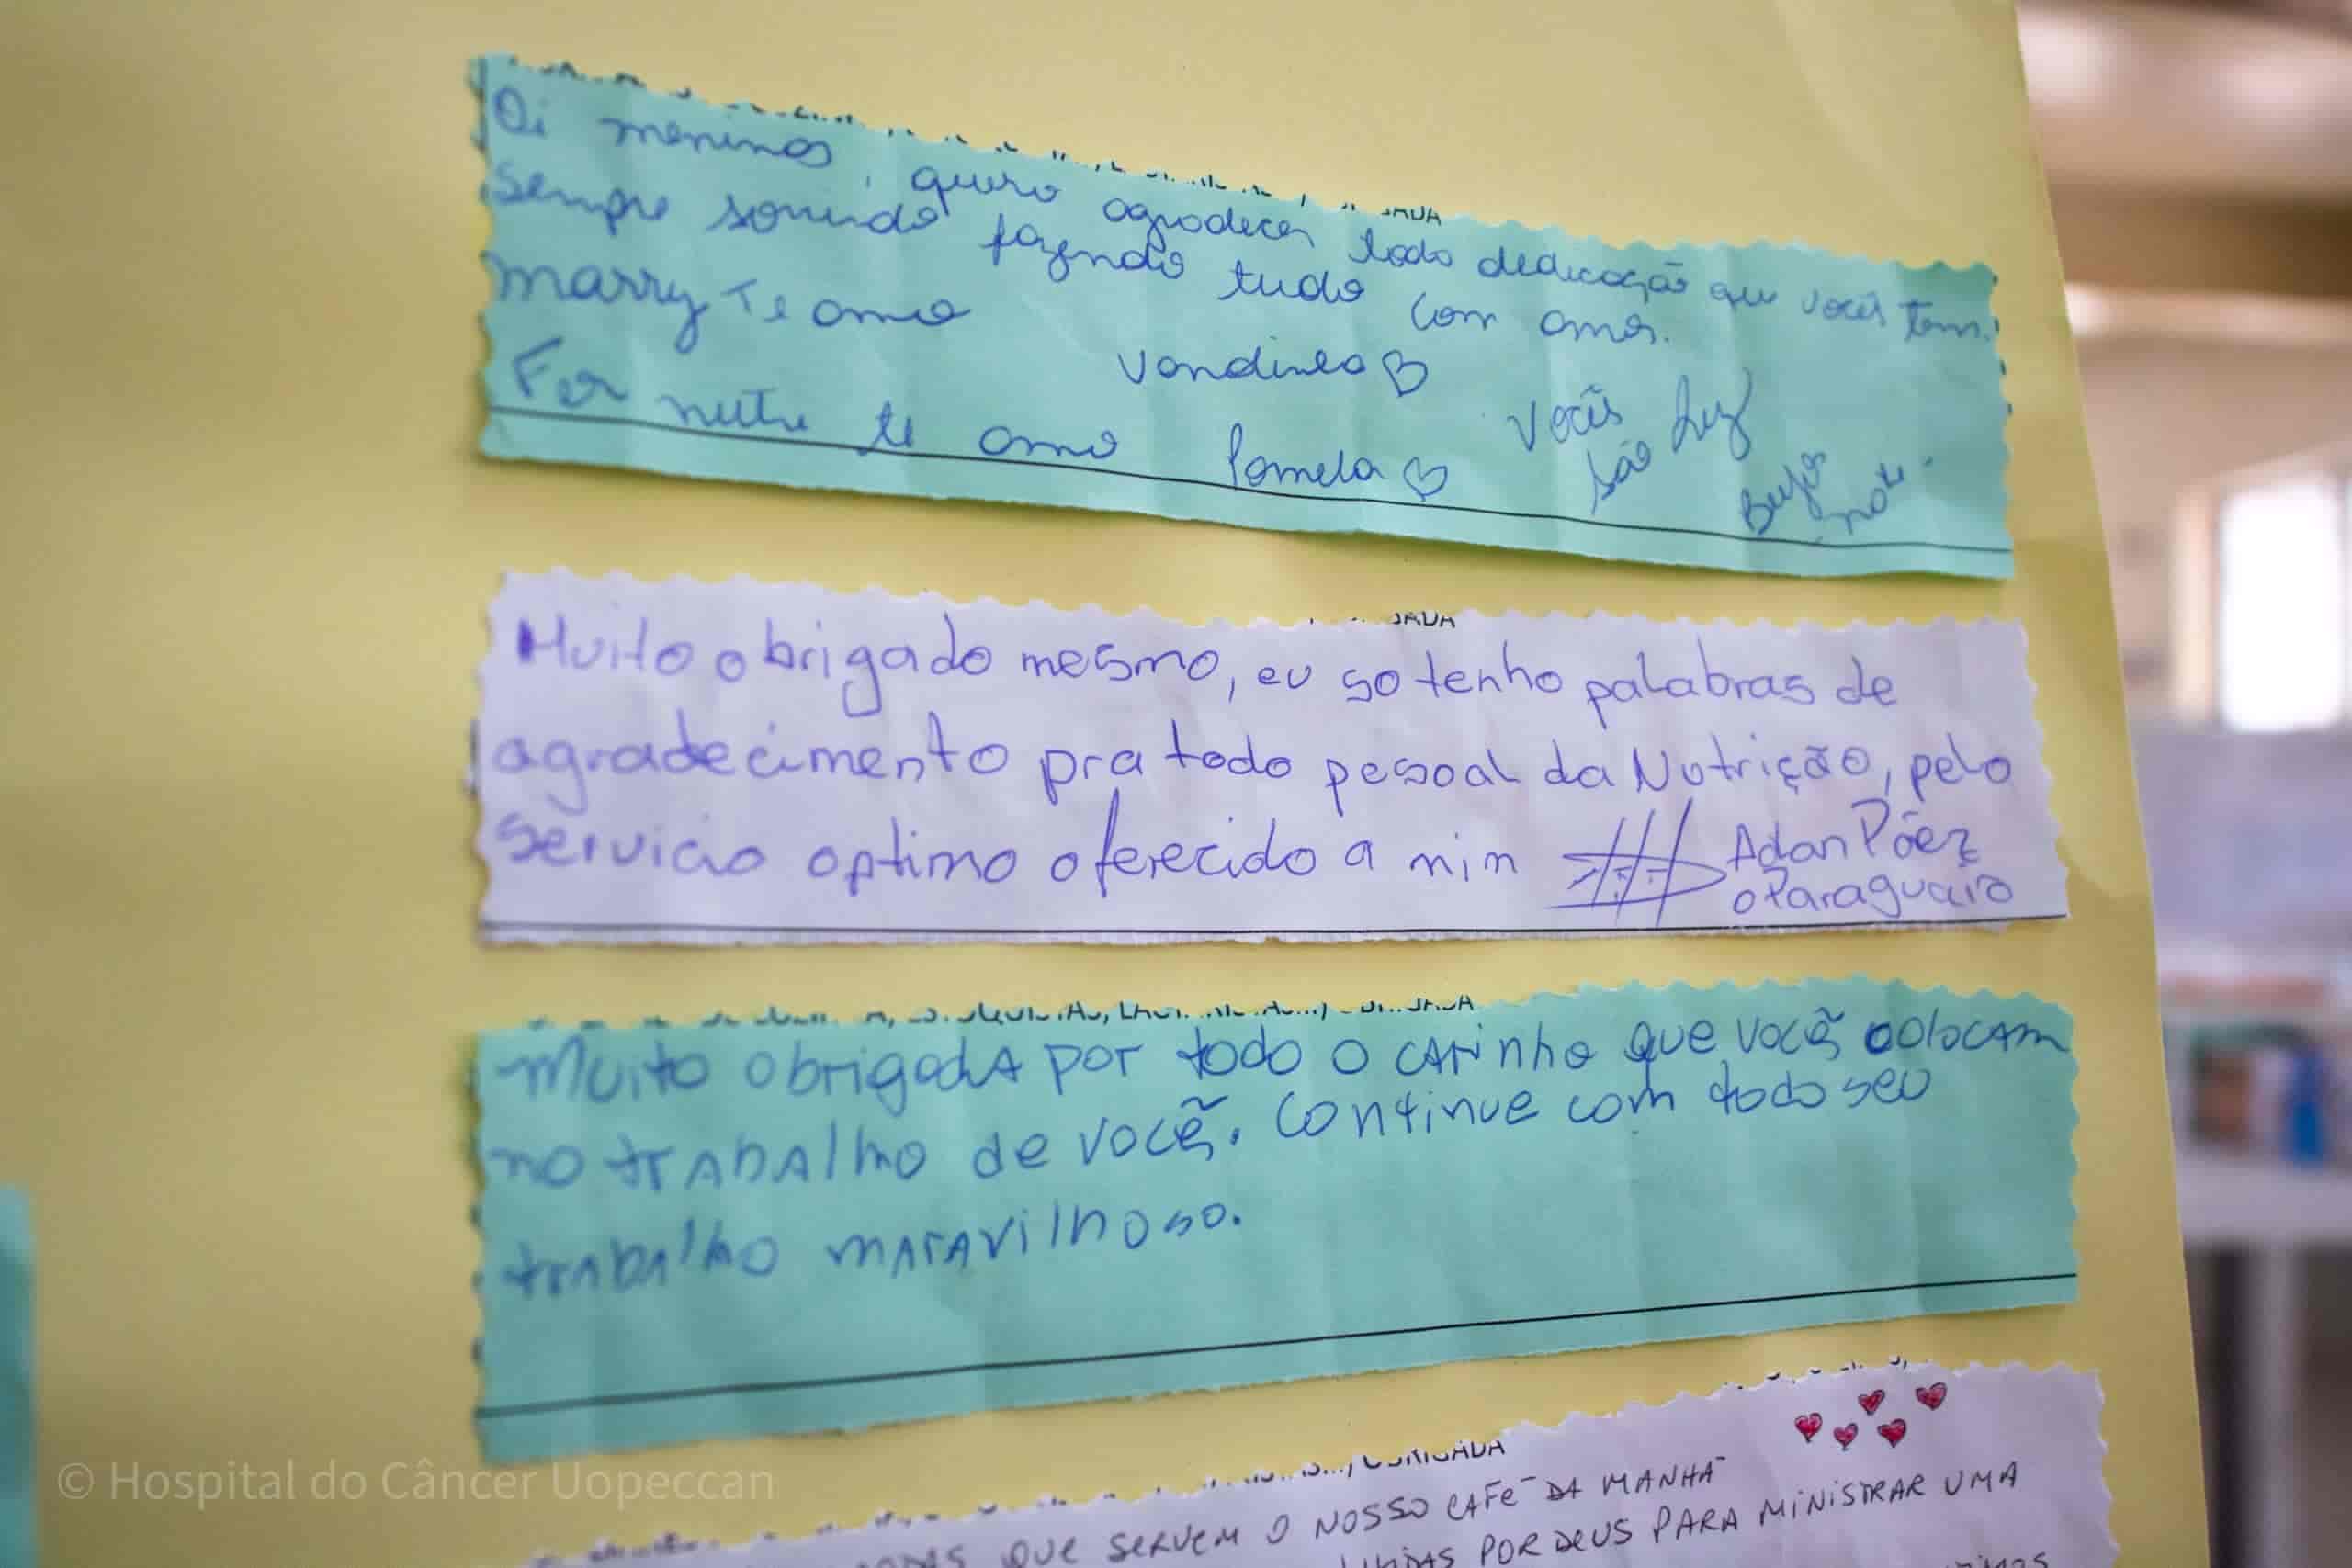 Oi meninas, quero agradecer toda dedicação que vocês tem.
Sempre sorrindo fazendo tudo com amor.
Marry Te amo
Vandinha♡
Fer nutri te amo Pamela♡ Vocês são luz
Muito obrigado mesmo, eu so tenho palabras de
agradecimento pra todo pessoal da Nutrição, pelo
servicio optimo oferecido a min Adan Páez
o Paraguaio
Muito obrigada por todo o carinho que você colocam
no trabalho de você. Continue com todo seu
trabalho maravilhoso.
OBRIGADA
QUE SERVEM O NOSSO CAFÉ DA MANHÃ
POR DEUS PARA MINISTRAR UMA
© Hospital do Câncer Uopeccan